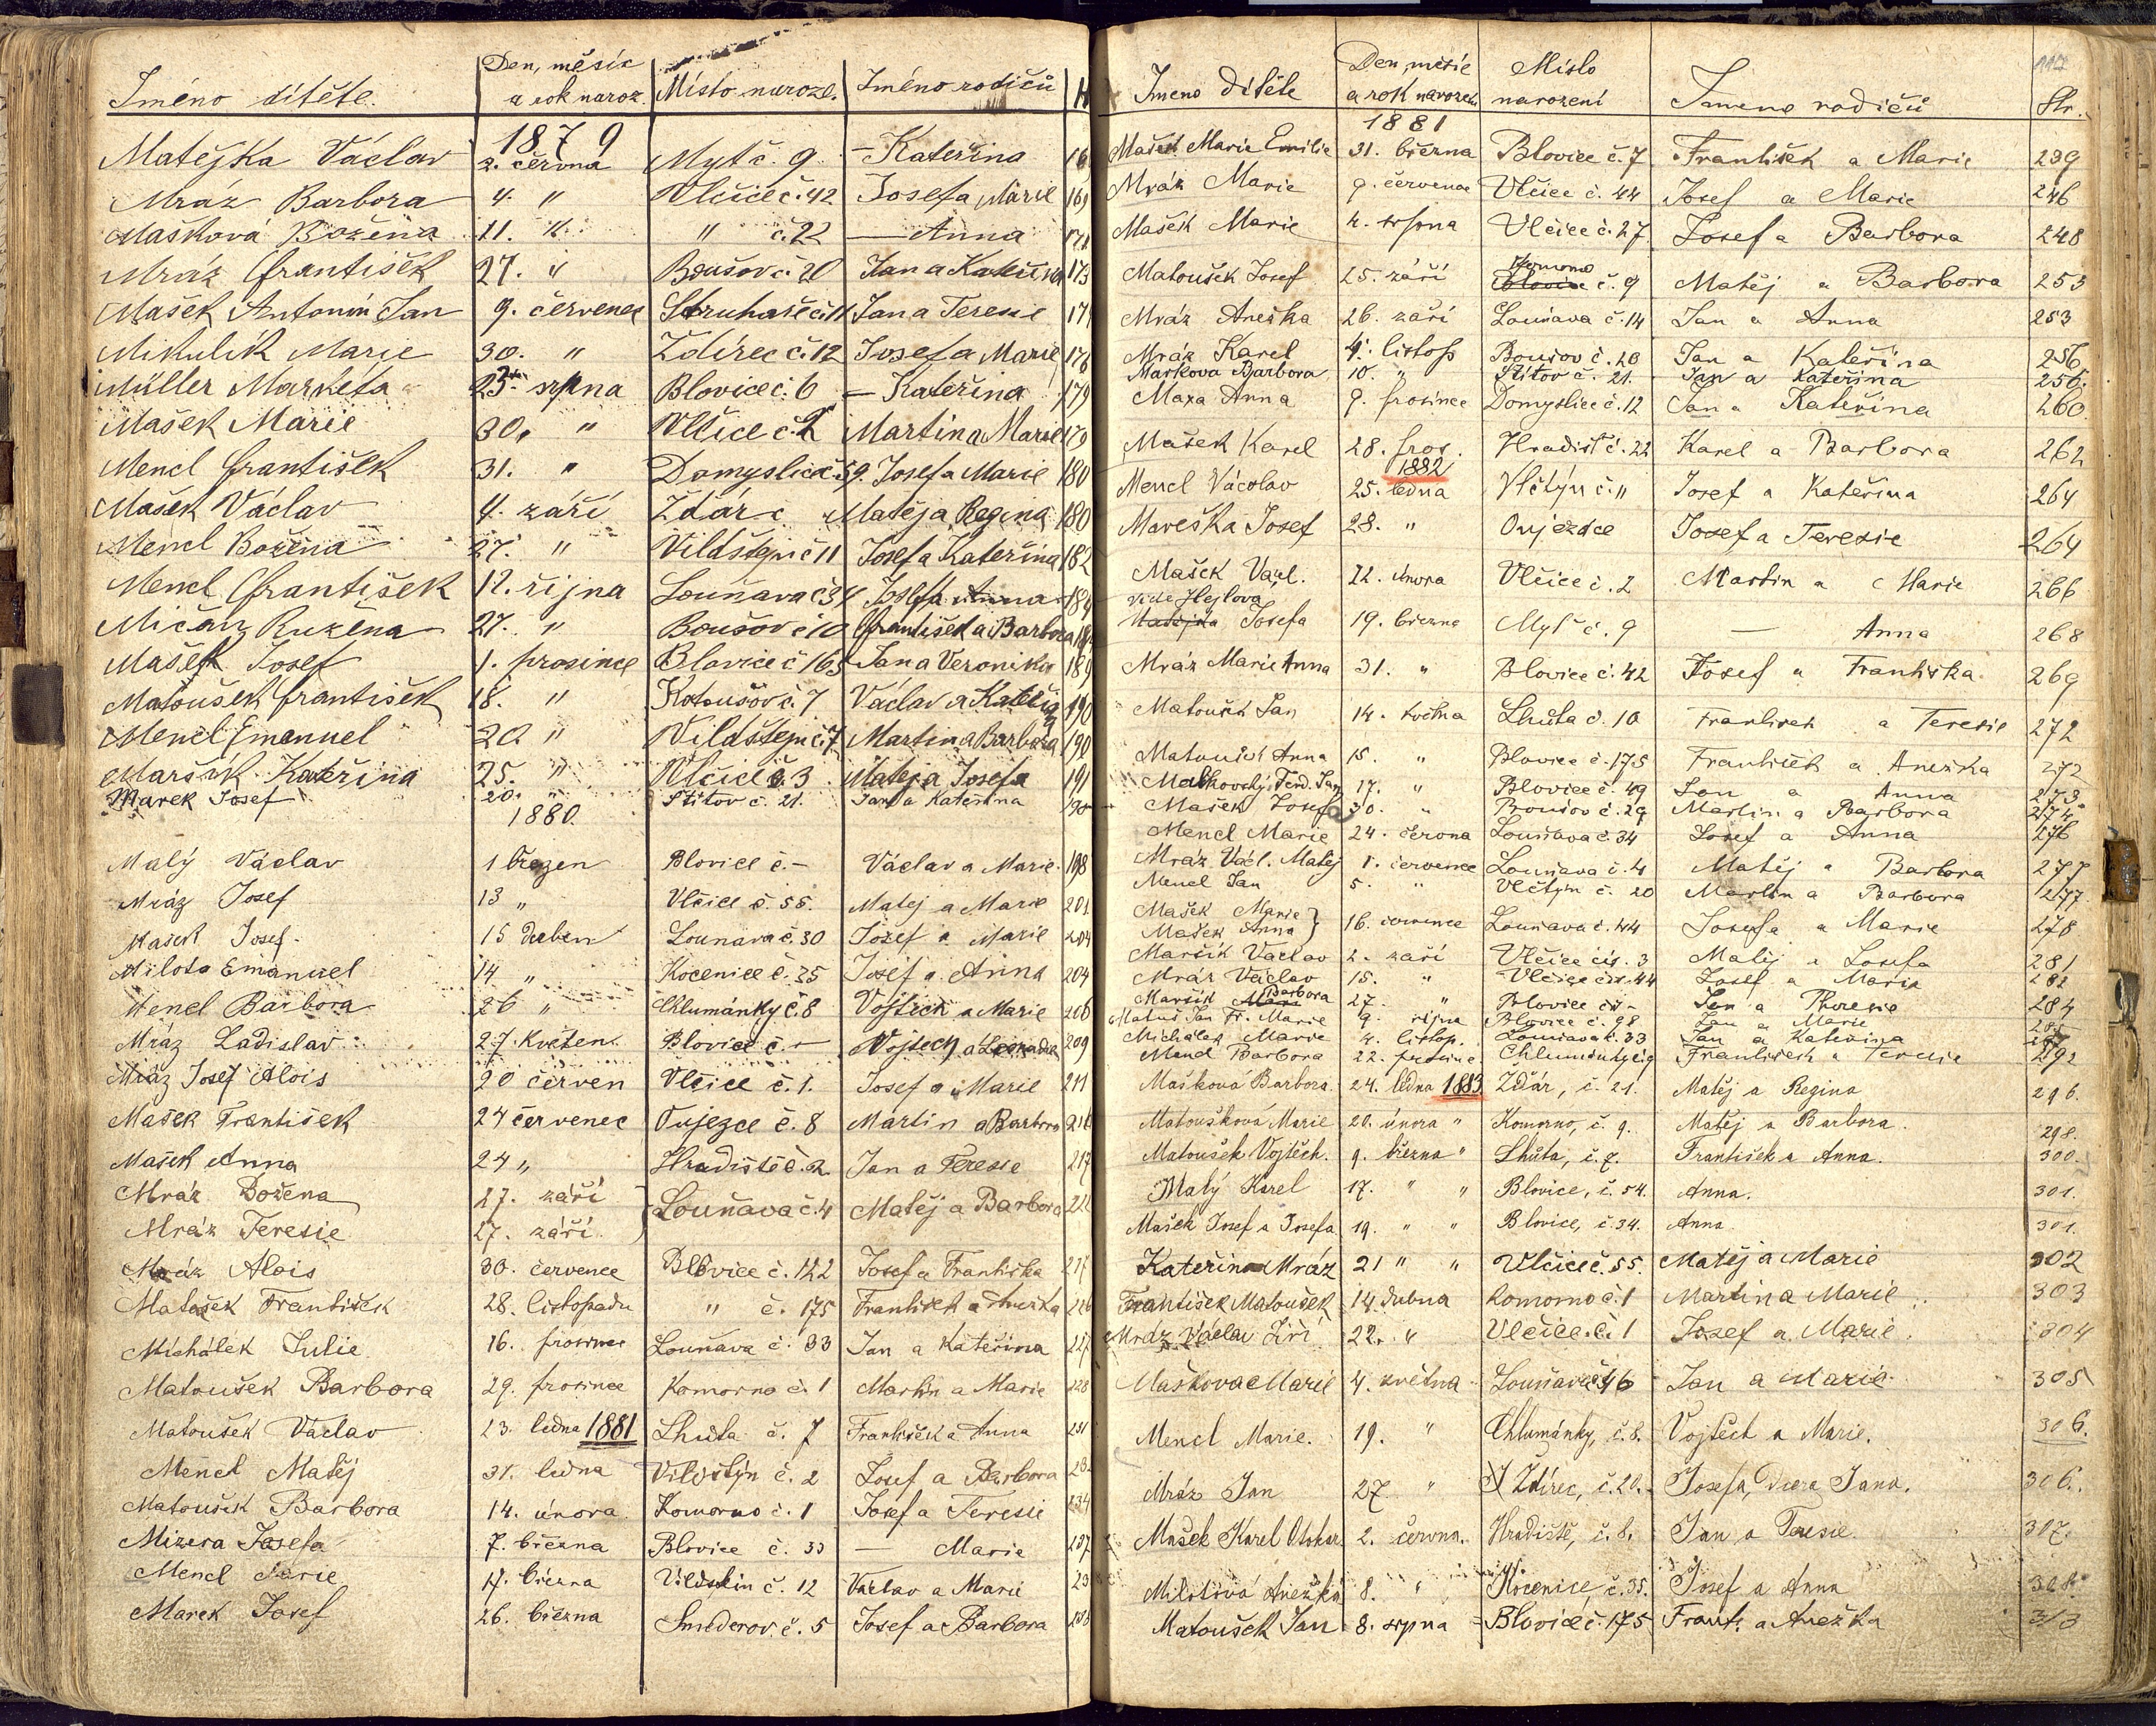 Jméno dítěte. Den, měsíc a rok naroz. Místo naroze. Jméno rodičů
1879
Matějka Václav 2. června Mytč. 9 — Kateřina
Mráz Barbora 4. " Vlčice č. 42 Josef a Marie 169
Mašková Božena 11. " " č. 22 — Anna 171
Mráz František 27. " Boušov č. 20 Jan a Kateřina 173
Mašek Antonín Jan 9. července Struhaře č. 11 Jan a Teresie
Mikulík Marie 30. " Ždírec č. 12 Josef a Marie 176
Müller Markéta 23. srpna Blovice č. 6 — Kateřina 179
Mašek Marie 30. " Vlčice č. 2 Martin a Marie 179
Mencl František 31. " Domyslice č. 59. Josef a Marie 180
Mašek Václav 4. září Ždár č Matěj a Regina 180
Mencl Božena 27. " Vildštejn č 11 Josef a Kateřina 182
Mencl František 12. října Louňava č 34 Josef a Anna 184
Mičan Ružena 27. " Boušov č 10 František a Barbora
Mašek Josef 1. prosince Blovice č 165 Jan a Veronika 189
Matoušek František 18. " Kotoušov č. 7 Václav a Kateřina 190
Mencl Emanuel 20 " Vildštejn č. 7 Martin a Barbora 190
Maršík Kateřina 25. " Vlčice č. 3 Matěj a Josefa 191
Marek Josef 20. " Štítov č. 21. Jan a Kateřina 190
1880.
Malý Václav 1 březen Blovice č. – Václav a Marie. 198
Mráz Josef 13 " Vlčice č. 55. Matěj a Marie 201
Mašek Josef. 15 duben Lounava č. 30 Jozef a Marie 204
Milota Emanuel 14 " Kocenice č. 35 Josef a Anna 204
Mencl Barbora 26 " Chlumánky č. 8 Vojtěch a Marie 206
Mráz Ladislav 27. Květen. Blovice č. – Vojtěch a Leokadie 209
Mráz Josef Alois 20 červen Vlčice č. 1. Josef a Marie 211
Mašek František 24 červenec Oujezce č. 8 Martin a Barbora 216
Mašek Anna 24 " Hradiště č. 2. Jan a Teresie 217
Mráz Božena 27. září Louňava č. 4 Matěj a Barbora 222
Mráz Teresie 27. září.
Mráz Alois 30. července Blovice č. 122 Josef a Františka 217
Matoušek František 28. listopadu " č. 175 František a Anežka 226
Michálek Julie 16. prosince Louňava č. 33 Jan a Kateřina 227
Matoušek Barbora 29. prosince Komorno č. 1 Martin a Marie 228
Matoušek Václav 23. ledna 1881 Lhůta č. 7 František a Anna 231
Mencl Matěj 31. ledna Vildštýn č. 2 Josef a Barbora
Matoušek Barbora 14. února Komorno č. 1 Josef a Teresie 234
Mizera Josefa 7. března Blovice č. 33 — Marie 237
Mencl Marie 17. března Vildštin č. 12 Václav a Marie
Marek Josef 26. března Smederov. č. 5 Josef a Barbora 238
Jmeno dítěte Den, měsíc a rok narození Místo narození Jmeno rodičů Str.
117
1881
Mašek Marie Emilie 31. března Blovice č. 7 František a Marie 239
Mráz Marie 9. července Vlčice č. 44 Josef a Marie 246
Mašek Marie 4. srpna Vlčice č. 27 Josef a Barbora 248
Matoušek Josef 25. září Komorno Blovice č. 9 Matěj a Barbora 253
Mráz Anežka 26. září Louňava č. 14 Jan a Anna 253
Mráz Karel 4. listop Boušov č. 20 Jan a Kateřina 256
Markova Barbora 10. " Štítov č. 21. Jan a Kateřina 256.
Maxa Anna 9. prosince Domyslice č. 12 Jan a Kateřina 260
Mašek Karel 28. pros. Hradišť č. 22 Karel a Barbora 262
1882
Mencl Václav 25. ledna Vlčtýn č. 11 Josef a Kateřina 264
Mareška Josef 28. " Oujezdce Josef a Teresie 264
Mašek Václ. 22. února Vlčice č. 2 Martin a Marie 266
vide Hejlova
Matějka Josefa 19. března Myť č. 9 — Anna 268
Mráz Marie Anna 31. " Blovice č. 42 Josef a Františka 269
Matoušek Jan 14. května Lhůta č. 10 František a Teresie 272
Matoušek Anna 15. " Blovice č. 175 František a Anežka 272
Malkovský Ferd. Jan 17. " Blovice č. 49 Jan a Anna 273
Mašek Josefa 30. " Boušov č. 29 Martin a Barbora 274
Mencl Marie 24. června Louňava č. 34 Josef a Anna 276
Mráz Václ. Matěj 1. července Louňava č. 4 Matěj a Barbora 277
Mencl Jan 5. " Vlčtýn č. 20 Martin a Barbora 277.
Mašek Marie } 16. července Louňava č. 44 Josefa a Marie 278
Mašek Anna
Maršík Václav 2. září Vlčice čís. 3 Matěj a Josefa 281
Mráz Václav 15. " Vlčice čís. 44 Josef a Marie 282
Maršík Marie Barbora 27. " Blovice čís – Jan a Theresie 284
Matuš Jan Fr. Marie 9. října Blovice č. 98 Jan a Marie
Michálek Marie 4. listop. Louňava č. 33 Jan a Kateřina
Mencl Barbora 22. prosince František a Teresie 292
Mašková Barbora. 24. ledna 1883 Ždár, č. 21. Matěj a Regina 296.
Matoušková Marie 20. února " Komorno, č. 9. Matěj a Barbora. 298.
Matoušek Vojtěch. 9. března " Lhůta, č. 7. František a Anna. 300.
Malý Karel 17. " " Blovice, č. 54. Anna. 301.
Mašek Josef a Josefa 19. " " Blovice, č. 34. Anna 301.
Kateřina Mráz 21 " " Vlčice č. 55. Matěj a Marie 302
František Matoušek 14 dubna Komorno č. 1 Martin a Marie 303
Mráz Václav Jiří 22. " Vlčice č. 1 Josef a Marie. 304
Maškova Marie 4. května Louňava č 46 Jan a Marie 305
Mencl Marie. 19. " Chlumánky, č. 8. Vojtěch a Marie. 306.
Mráz Jan 27 " Ždírec, č. 20. Josefa, dcera Jana. 306.
Mašek Karel Otokar 2. června. Hradiště, č. 8. Jan a Teresie. 307.
Milotová Anežka 8. " Kocenice, č. 35. Josef a Anna 308.
Matoušek Jan 8. srpna Blovice č. 175 Frant. a Anežka 313